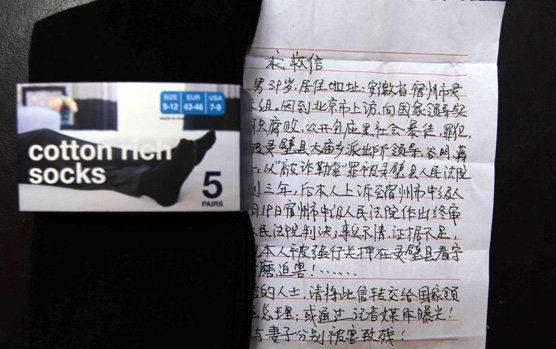 SIZE EUR USA
9-12 43-46 7-9
cotton rich
socks
5
PAIRS
求救信
男39岁,居住地址:安徽省宿州市灵
组,因到北京市上访,向国家领导反
腐败,公开
被灵璧县大庙乡派出所领导谷明,蒋
,以"敲诈勒索"罪被灵璧县人民法院
刑三年,后本人上诉宿州市中级人
月19日宿州市中级人民法院作出终审
人民法院判决:事实不清,证据不足,
本人被强行关押在灵璧县看守
磨,迫害!……
信的人士,请将此信转交给国家领
总理;或通过记者媒体曝光!
与妻子分别被害致残!